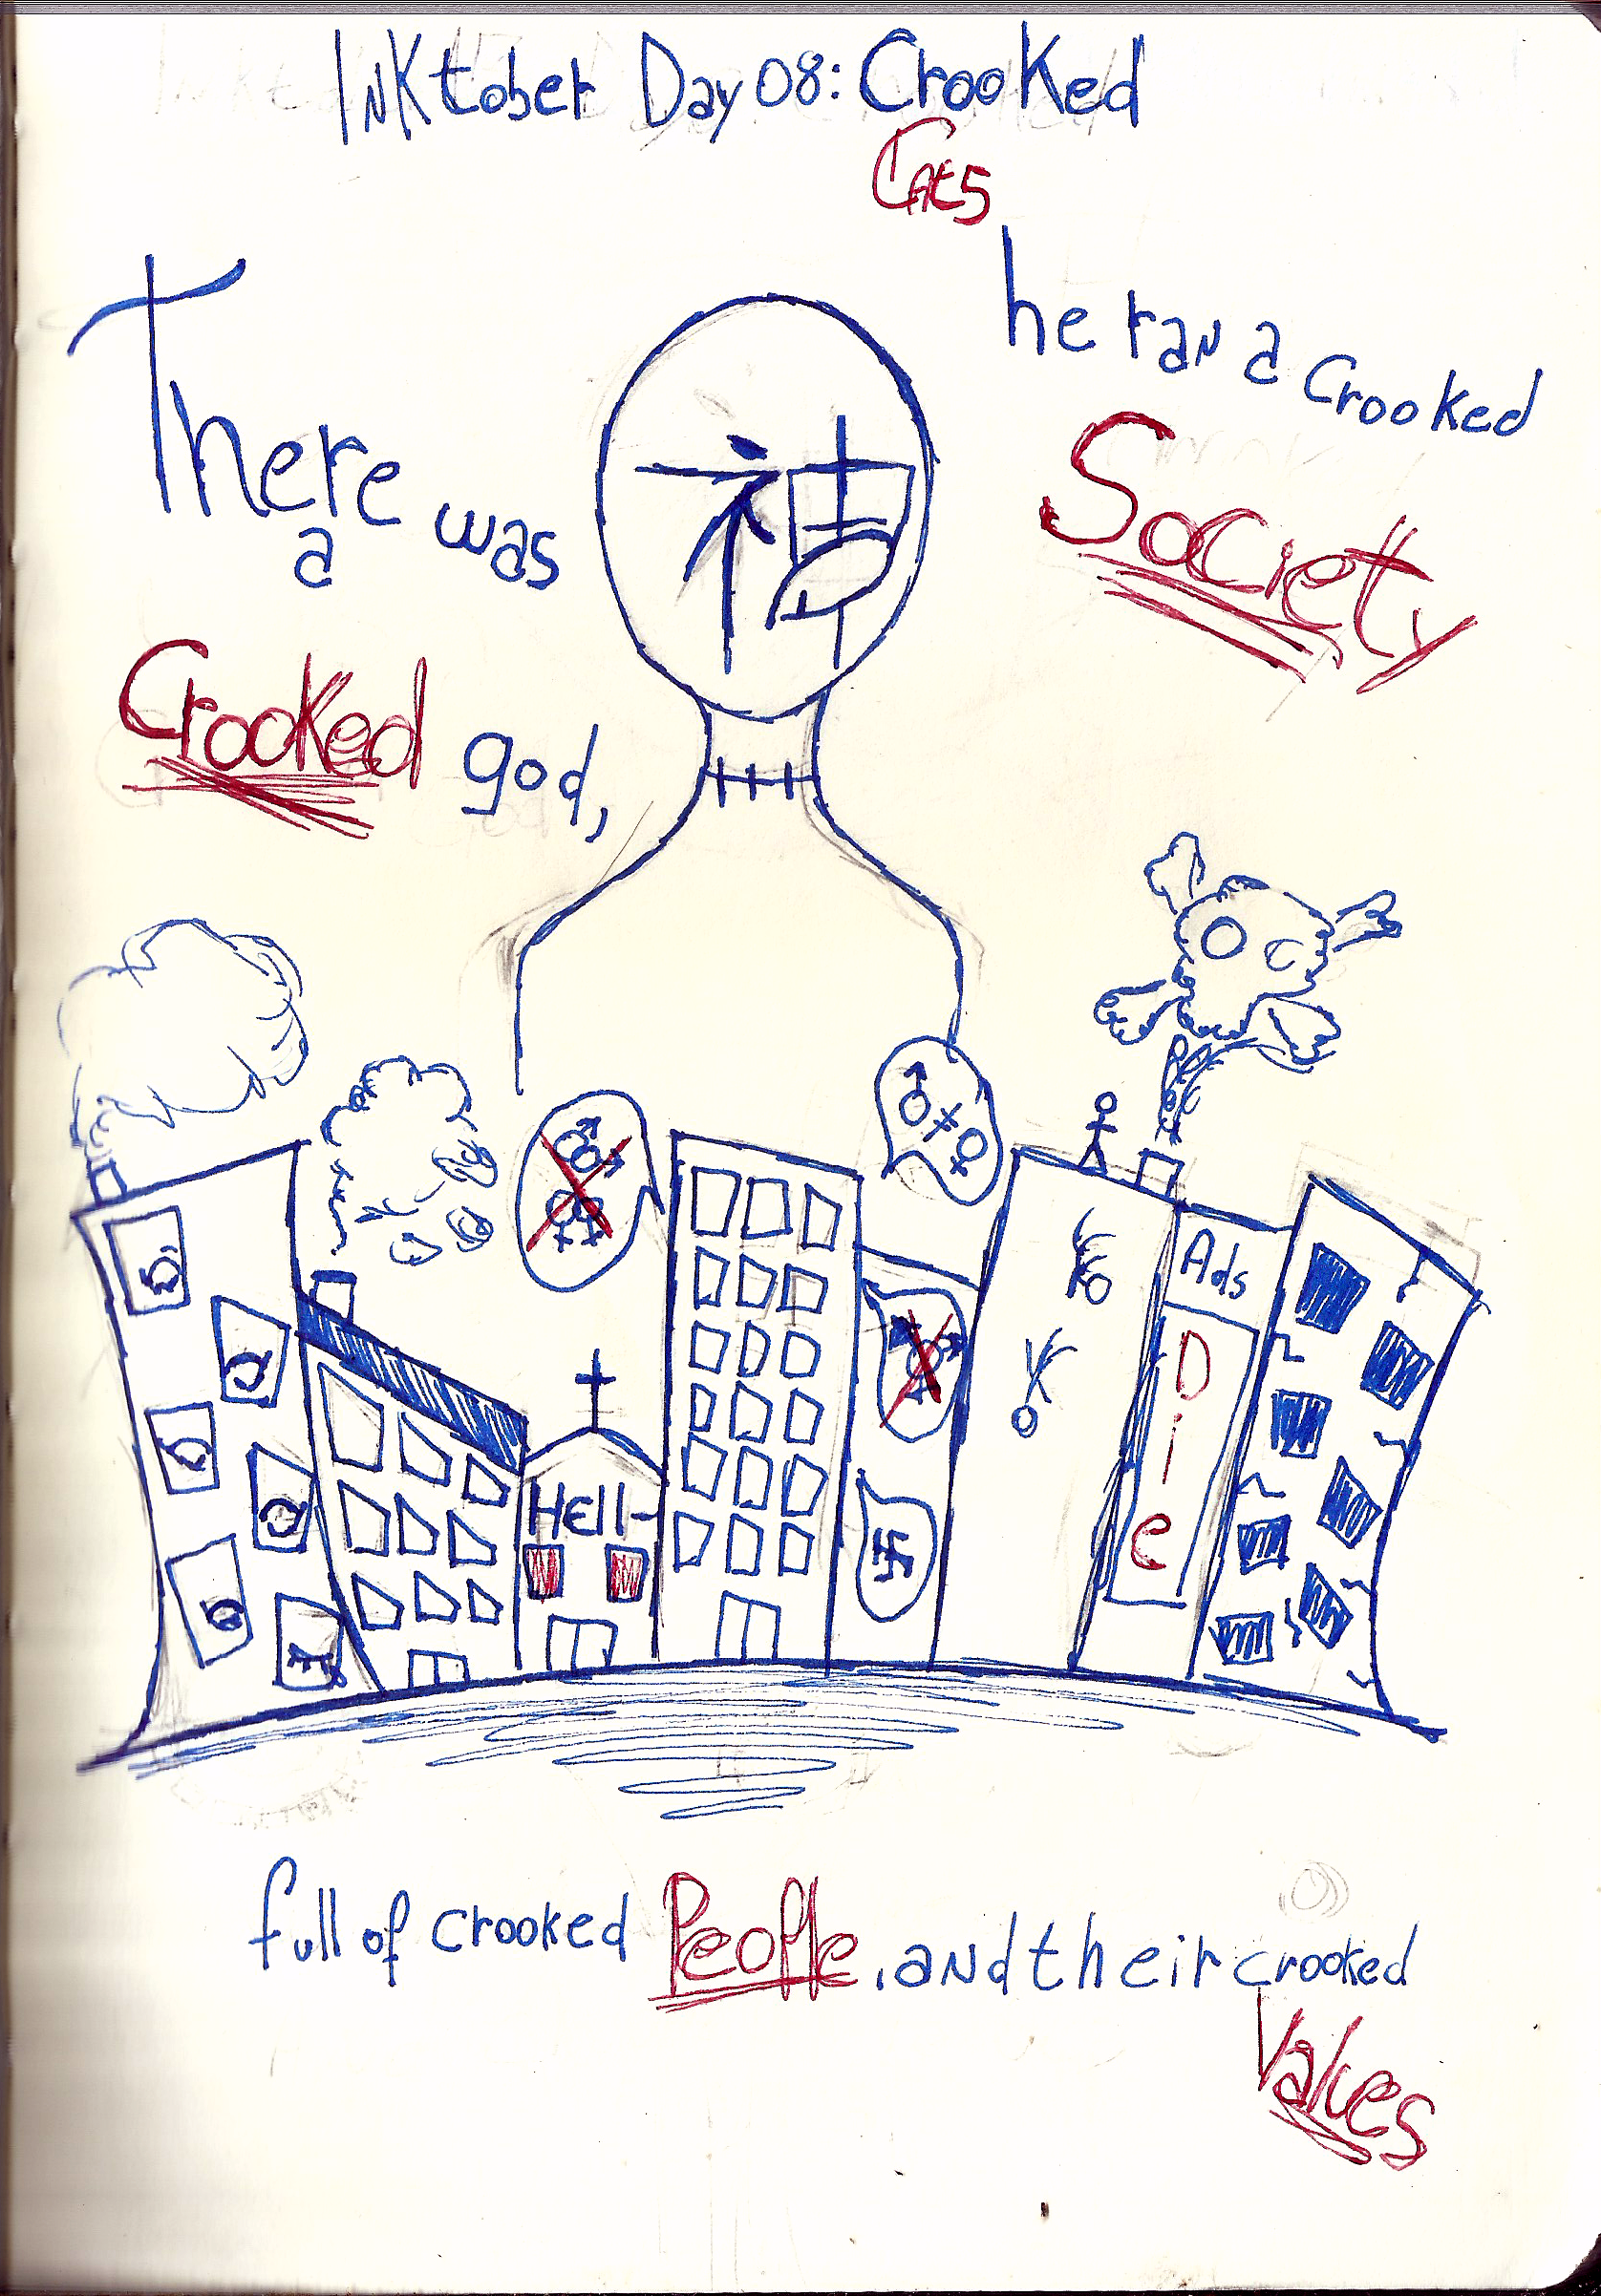 INKtober Day 08: Crooked
There was
a
Crooked god,
he ran a crooked
Society
神
Ads
Die
HEll
full of crooked People, and their crooked
Values